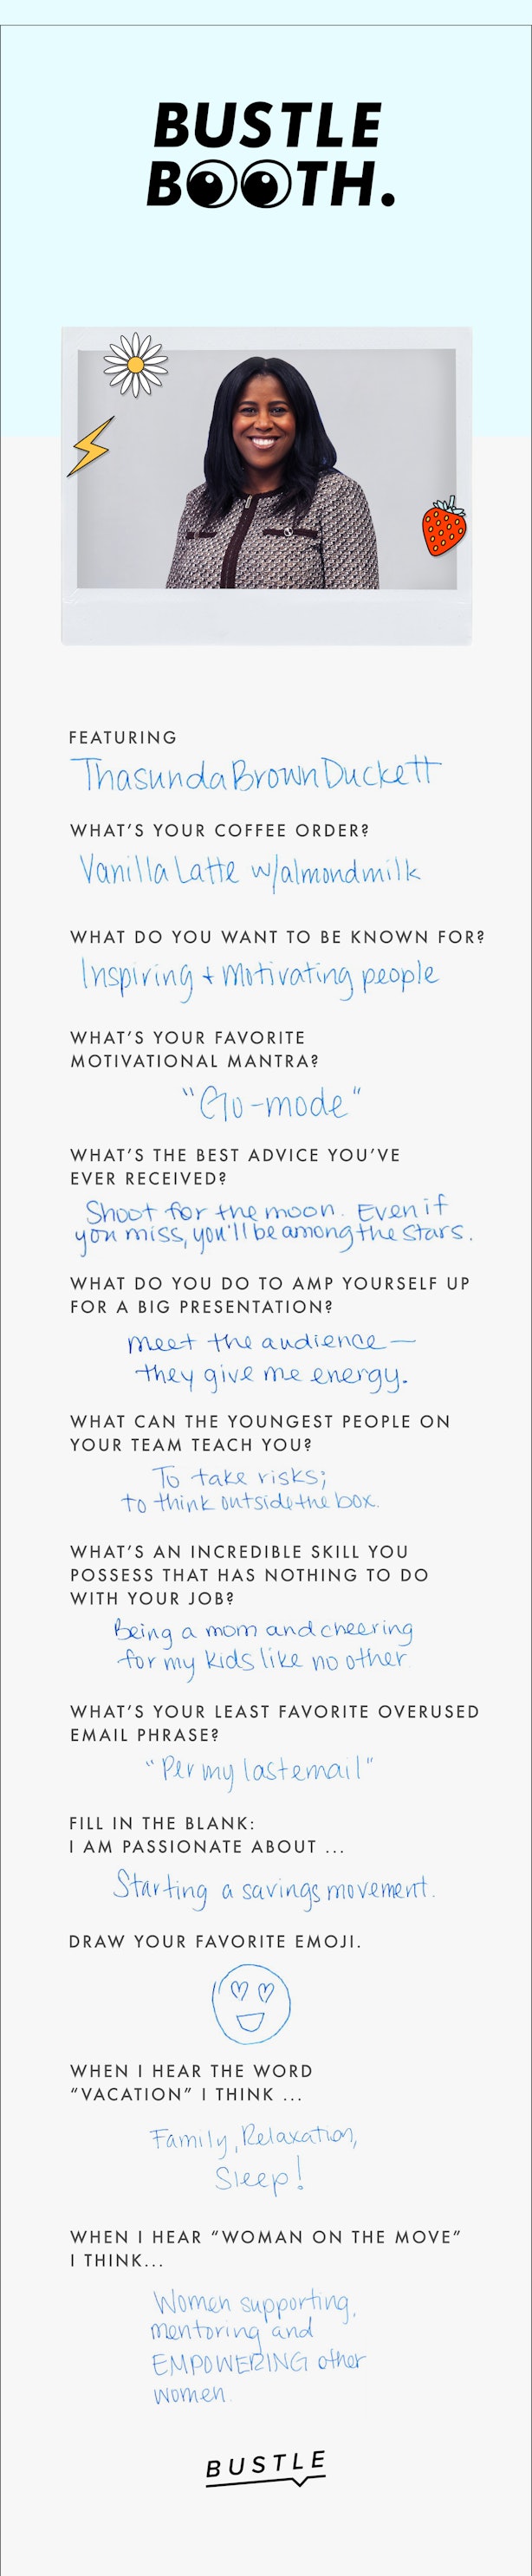 BUSTLE
BOOTH.
FEATURING
Thasunda Brown Duckett
WHAT'S YOUR COFFEE ORDER?
Vanilla Latte w/almondmilk
WHAT DO YOU WANT TO BE KNOWN FOR?
Inspiring + Motivating people
WHAT'S YOUR FAVORITE
MOTIVATIONAL MANTRA?
"Go-mode"
WHAT'S THE BEST ADVICE YOU'VE
EVER RECEIVED?
Shoot for the moon. Even if
you miss, you'll be among the stars.
WHAT DO YOU DO TO AMP YOURSELF UP
FOR A BIG PRESENTATION?
meet the audience—
they give me energy.
WHAT CAN THE YOUNGEST PEOPLE ON
YOUR TEAM TEACH YOU?
To take risks;
to think outside the box.
WHAT'S AN INCREDIBLE SKILL YOU
POSSESS THAT HAS NOTHING TO DO
WITH YOUR JOB?
Being a mom and cheering
for my kids like no other
WHAT'S YOUR LEAST FAVORITE OVERUSED
EMAIL PHRASE?
"Per my last email"
FILL IN THE BLANK:
I AM PASSIONATE ABOUT ...
Starting a savings movement.
DRAW YOUR FAVORITE EMOJI.
WHEN I HEAR THE WORD
"VACATION" I THINK ...
Family, Relaxation,
Sleep!
WHEN I HEAR "WOMAN ON THE MOVE"
I THINK...
Women supporting,
mentoring and
EMPOWERING other
women.
BUSTLE